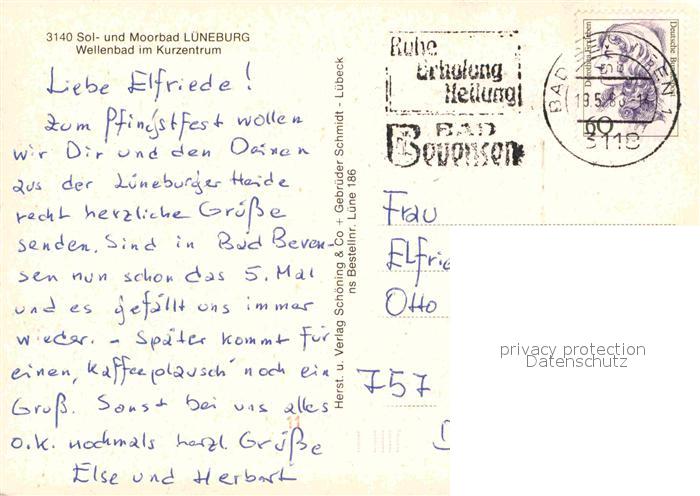 3140 Sol- und Moorbad LÜNEBURG
Wellenbad im Kurzentrum
Liebe Elfriede!
Zum Pfingstfest wollen
wir Dir und den Deinen
aus der Lüneburger Heide
recht herzliche Grüße
senden. Sind in Bad Beven-
sen nun schon das 5. Mal
und es gefällt uns immer
wieder. – Später kommt für
einen „Kaffeeplausch" noch ein
Gruß. Sonst bei uns alles
o.k. nochmals herzl. Grüße
Else und Herbert
11
Herst. u. Verlag Schöning & Co + Gebrüder Schmidt - Lübeck
ns Bestellnr. Lüne 186
Ruhe
Erholung
Heilung
BAD
Bevensen
BAD
3118
60
Deutsche Bu
Frau
Elfrie
Otto
757
privacy protection
Datenschutz